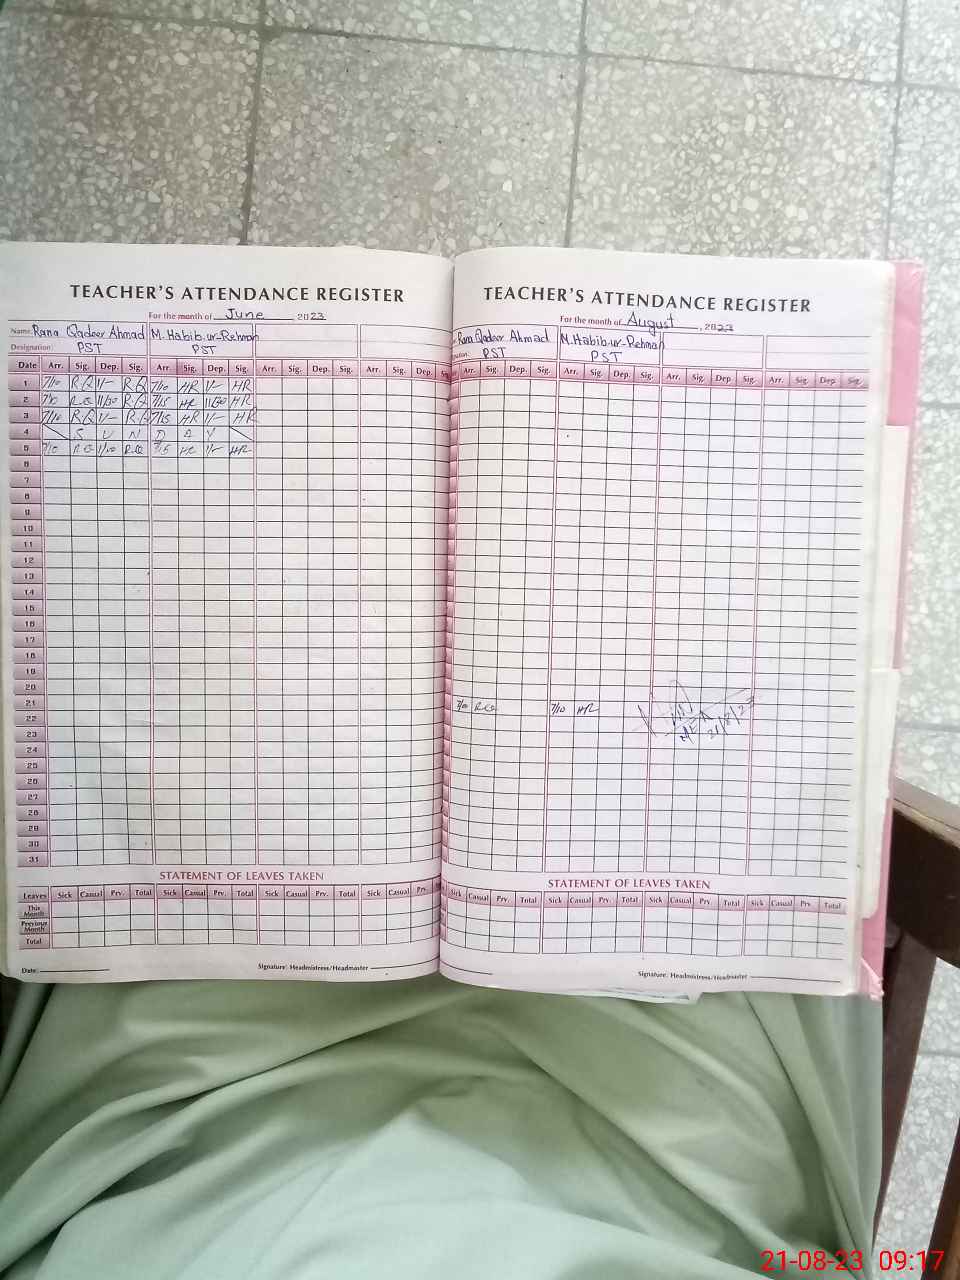 TEACHER'S ATTENDANCE REGISTER
For the month of June, 2023
Name: Rana Qadeer Ahmad M. Habib-ur-Rehman
Designation: PST PST
Date Arr. Sig. Dep. Sig. Arr. Sig. Dep. Sig. Arr. Sig. Dep. Sig. Arr. Sig. Dep. Sig.
1 7/10 R.Q 1/- R.Q 7/10 HR 1/- HR
2 7/10 R.Q 11/30 R.Q 7/15 HR 11/30 HR
3 7/10 R.Q 1/- R.Q 7/15 HR 1/- HR
4 S U N D A Y
5 7/10 R.Q R.Q 7/15 HR 1/- HR
6
7
8
9
10
11
12
13
14
15
16
17
18
19
20
21
22
23
24
25
26
27
28
29
30
31
STATEMENT OF LEAVES TAKEN
Leaves Sick Casual Prv. Total Sick Casual Prv. Total Sick Casual Prv. Total Sick Casual Prv.
This Month
Previous Month
Total
Date:
Signature: Headmistress/Headmaster
TEACHER'S ATTENDANCE REGISTER
For the month of August, 2023
Rana Qadeer Ahmad M.Habib-ur-Rehman
PST PST
Arr. Sig. Dep. Sig. Arr. Sig. Dep. Sig. Arr. Sig. Dep. Sig. Arr. Sig. Dep. Sig.
7/10 R.Q 7/10 HR
21/8/23
STATEMENT OF LEAVES TAKEN
Sick Casual Prv. Total Sick Casual Prv. Total Sick Casual Prv. Total Sick Casual Prv. Total
Signature: Headmistress/Headmaster
21-08-23 09:17